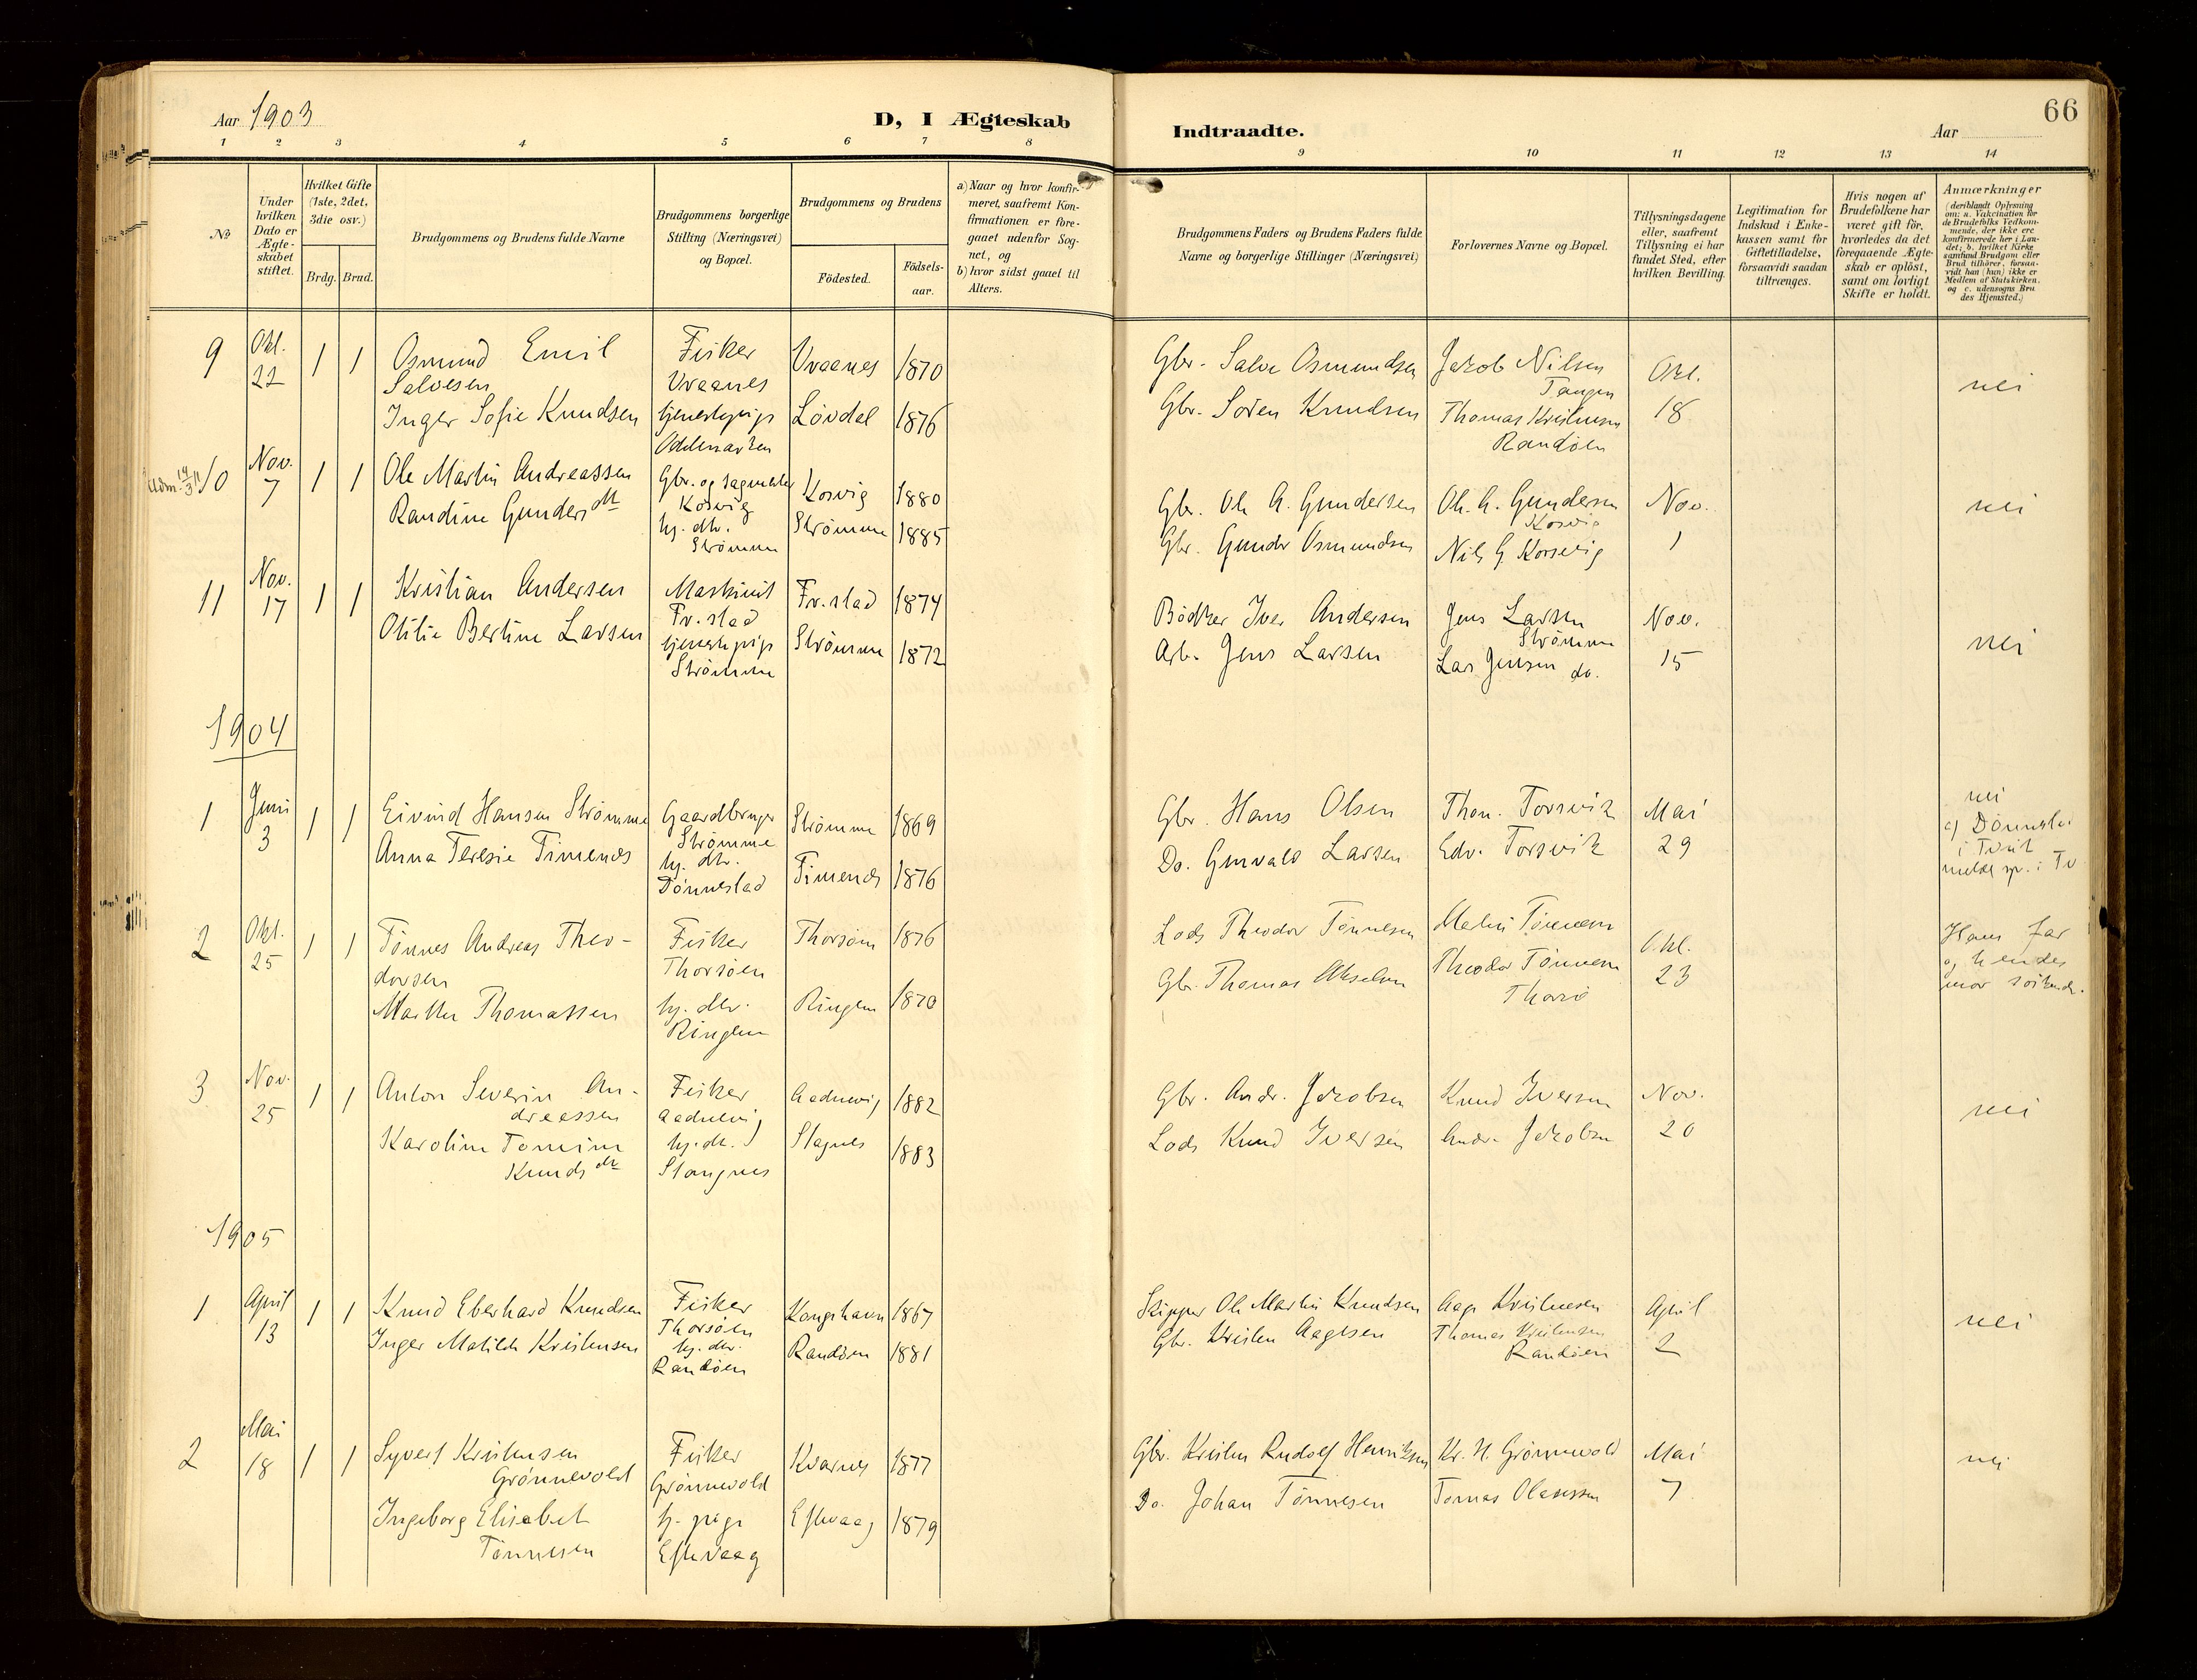 66
Aar 1903
D, I Ægteskab
Indtraadte.
Aar
1 2 3 4 5 6 7 8 9 10 11 12 13 14
No
Under hvilken Dato er Ægteskabet stiftet.
Hvilket Gifte (1ste, 2det, 3die osv.)
Brdg. Brud.
Brudgommens og Brudens fulde Navne
Brudgommens borgerlige Stilling (Næringsvei) og Bopæl.
Brudgommens og Brudens
Födested.
Födsels-aar.
a) Naar og hvor konfirmeret, saafremt Konfirmationen er foregaaet udenfor Sognet, og
b) hvor sidst gaaet til Alters.
Brudgommens Faders og Brudens Faders fulde Navne og borgerlige Stillinger (Næringsvei)
Forlovernes Navne og Bopæl.
Tillysningsdagene eller, saafremt Tillysning ei har fundet Sted, efter hvilken Bevilling.
Legitimation for Indskud i Enkekassen samt for Giftetilladelse, forsaavidt saadan tiltrænges.
Hvis nogen af Brudefolkene har været gift för, hvorledes da det foregaaende Ægteskab er oplöst, samt om lovligt Skifte er holdt.
Anmærkninger (deriblandt Oplysning om: a. Vakcination for de Brudefolks Vedkommende, der ikke ere konfirmerede her i Landet; b. hvilket Kirkesamfund Brudgom eller Brud tilhörer, forsaavidt han (hun) ikke er Medlem af Statskirken. og c. udensogns Brudes Hjemsted.)
9 Okt. 22 1 1 Osmund Emil Fisker Uvaanes 1870 Gbr. Salve Osmundsen Jakob Nilsen Okt. nei
Salvesen Uvaanes Tangen
Inger Sofie Knudsen tjenestepige Lövdal 1876 Gbr. Sören Knudsen Thomas Kristensen 18
Oddernæsen Randöen
10 Nov. 7 1 1 Ole Martin Andreassen Gbr. og sagmester Kosvig 1880 Gbr. Ole A. Gundersen Ole A. Gundersen Nov. nei
Kosvig Kosvig
Randine Gundersdtr hj. dtr. Strömme 1885 Gbr. Gunder Osmundsen Nils G. Korsvig 1
Strömme
11 Nov. 17 1 1 Kristian Andersen Maskinist Fr.stad 1874 Bödker Iver Andersen Jens Larsen Nov. nei
Fr.stad Strömme
Otilie Bertine Larsen tjenestepige Strömme 1872 Arb. Jens Larsen Lars Jensen do. 15
Strömme
1904
1 Juni 3 1 1 Eivind Hansen Strömme Gaardbruger Strömme 1869 Gbr. Hans Olsen Thom. Torsvik Mai nei
Strömme c) Dönnestad
Anna Teresie Timenes hj. dtr. Timenes 1876 Do. Gunvald Larsen Edv. Torsvik 29 i Tveit
Dönnestad
2 Okt. 25 1 1 Tönnes Andreas Theo- Fisker Thorsöen 1876 Lods Theodor Tönnesen Martin Tönnesen Okt. Hans far
dorsen Thorsöen og hendes
Marthe Thomassen hj. dtr. Ringen 1870 Gbr. Thomas Akselsen Theodor Tönnesen 23 mor söskende.
Ringen Thorsö
3 Nov. 25 1 1 Anton Severin An- Fisker Aadnevig 1882 Gbr. Andr. Jakobsen Knud Iversen Nov. nei
dreassen Aadnevig
Karoline Tomine hj. dtr. Stagnes 1883 Lods Knud Iversen Andr. Jakobsen 20
Knudsdtr Stangnes
1905
1 April 13 1 1 Knud Eberhard Knudsen Fisker Kongshavn 1867 Skipper Ole Martin Knudsen Aage Kristensen April nei
Thorsöen
Inger Matilde Kristensen hj. dtr. Randöen 1881 Gbr. Kristen Aagesen Thomas Kristensen 2
Randöen Randöen
2 Mai 18 1 1 Syvert Kristensen Fisker Kvarnes 1877 Gbr. Kristen Rudolf Henriksen Kr. H. Grönnevold Mai nei
Grönnevold Grönnevold
Ingeborg Elisabet tj. pige Eftevaag 1879 Do. Johan Tönnesen Tomas Olaisen 7
Tönnesen Eftevaag